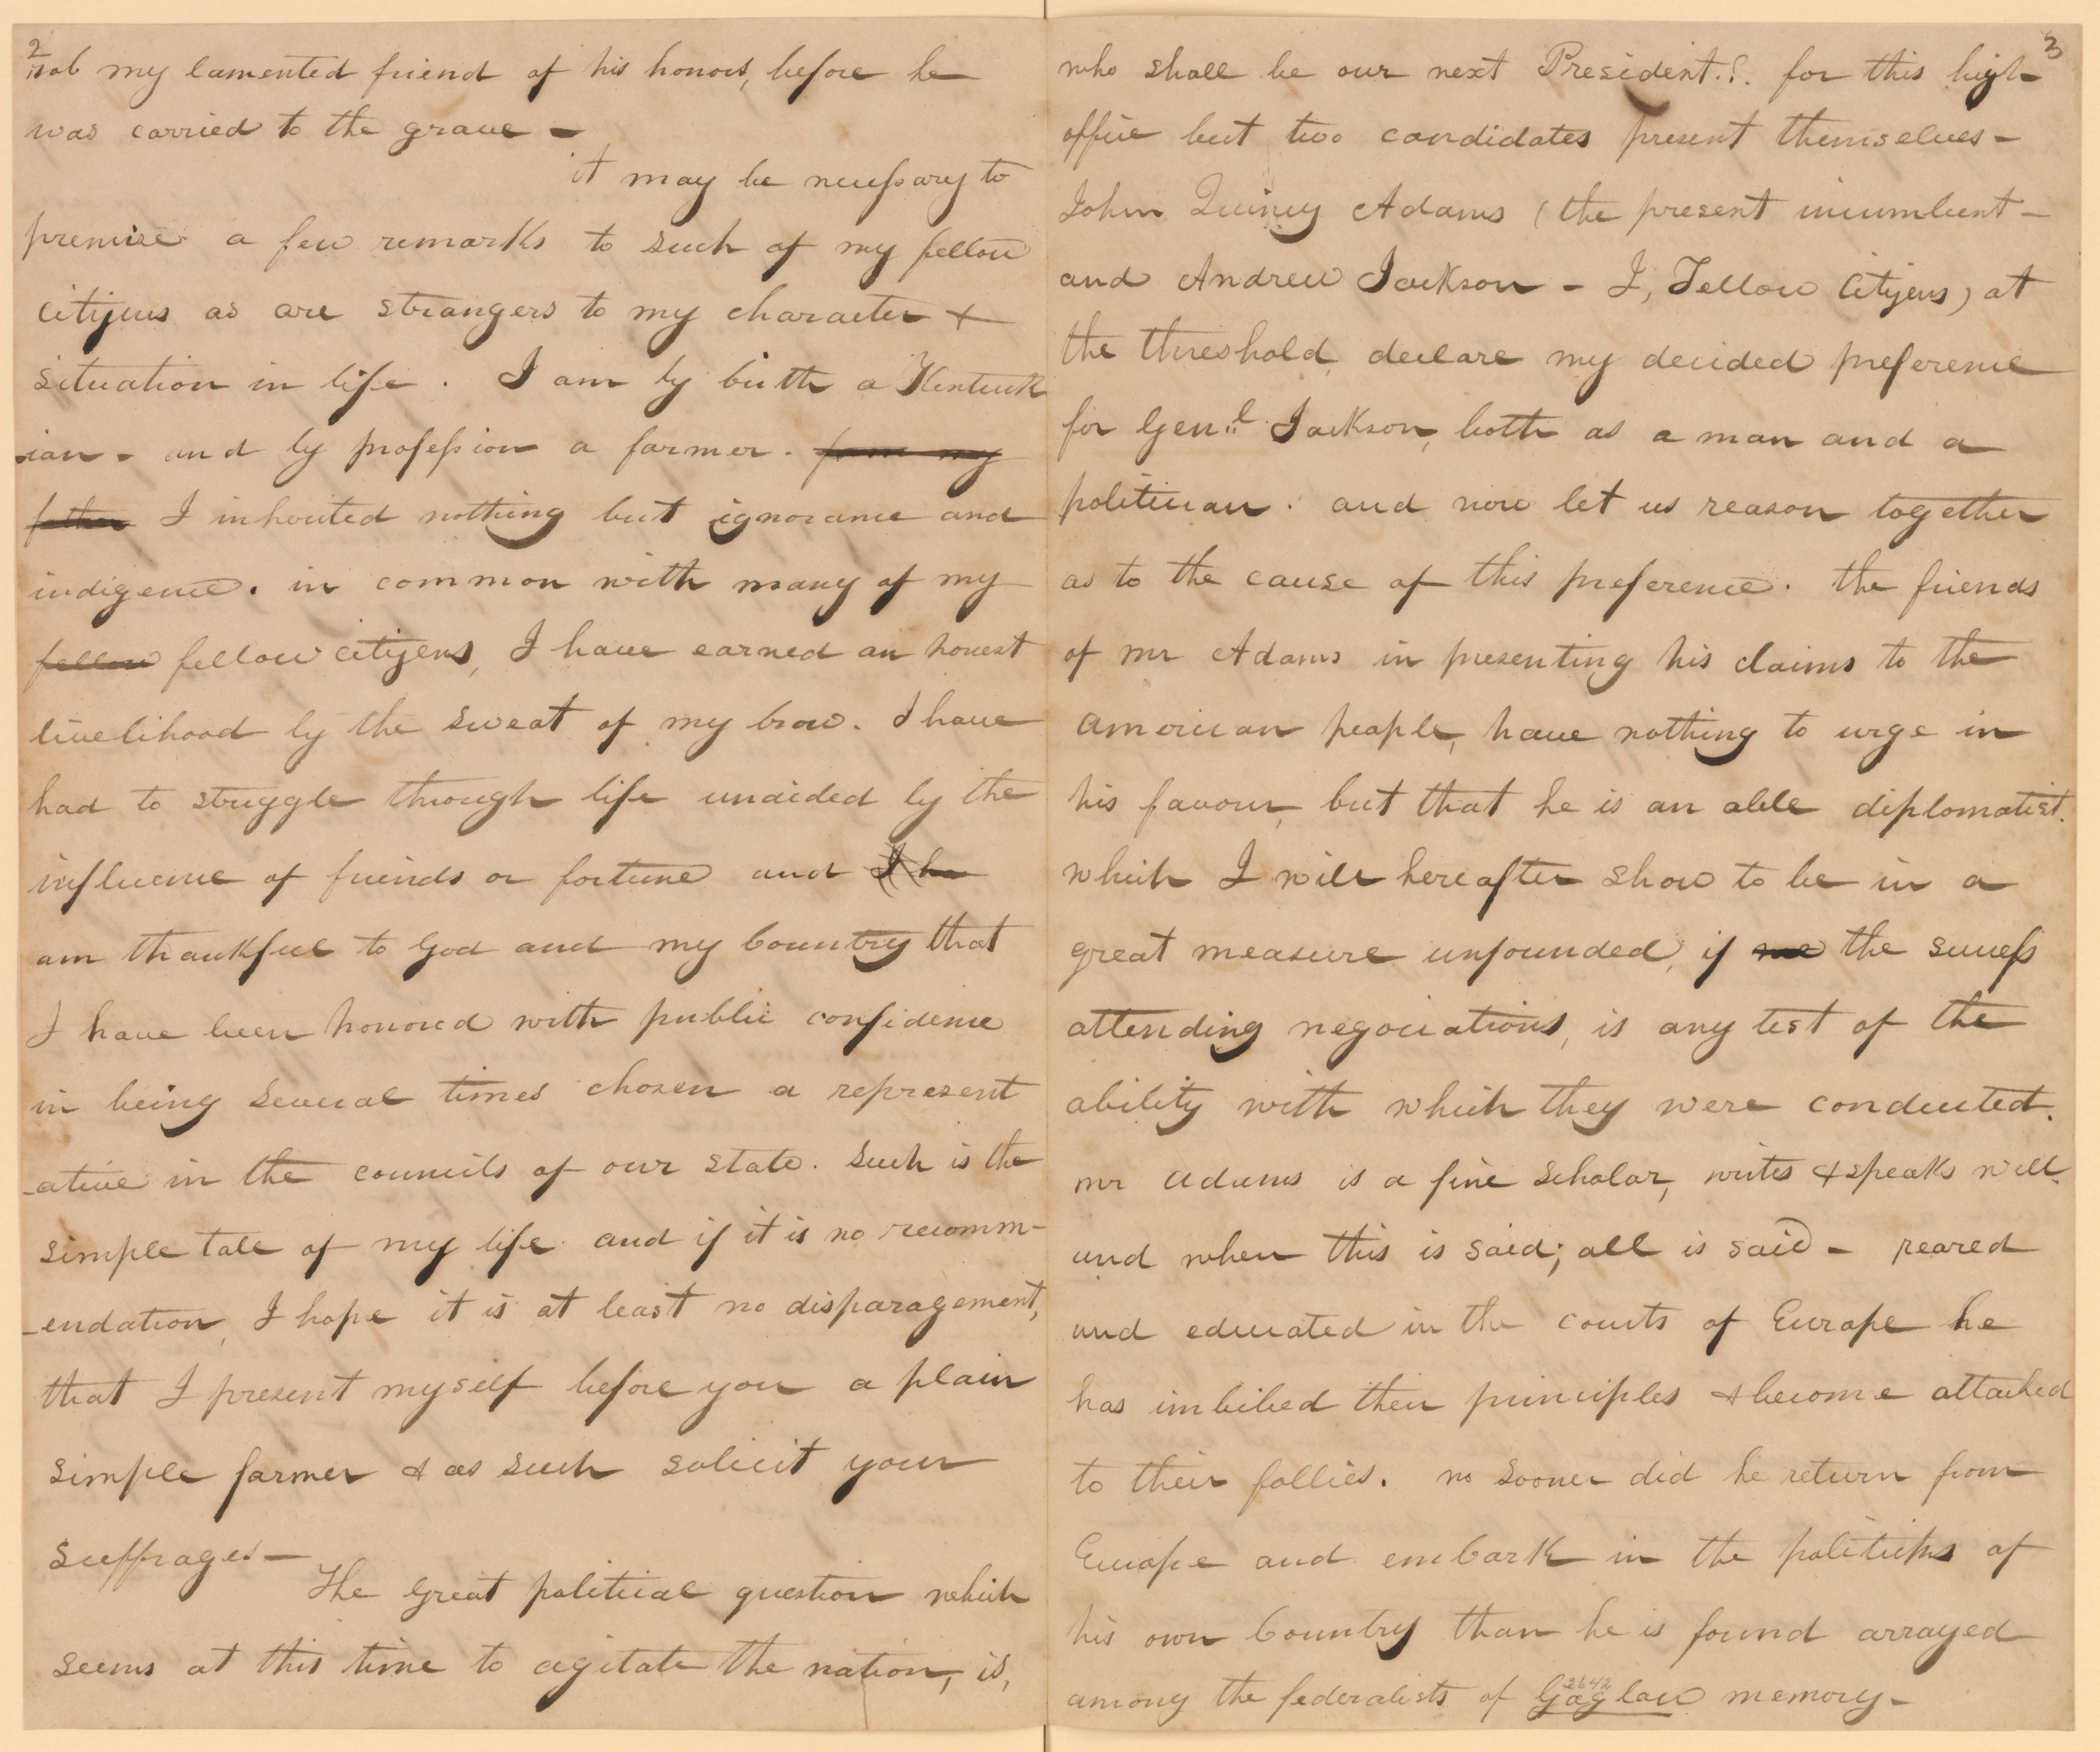 2
rob my lamented friend of his honors, before he
was carried to the grave -
it may be necessary to
premise a few remarks to such of my fellow
citizens as are strangers to my character &
situation in life. I am by birth a Kentuck
ian - and by profession a farmer. from my
father I inherited nothing but ignorance and
indigence. in common with many of my
fellow fellow citizens, I have earned an honest
livelihood by the sweat of my brow. I have
had to struggle through life unaided by the
influence of friends or fortune and I ha
am thankful to God and my Country that
I have been honored with public confidence
in being several times chosen a represent
-ative in the councils of our state. Such is the
simple tale of my life and if it is no recomm-
-endation, I hope it is at least no disparagement,
that I present myself before you a plain
simple farmer & as such solicit your
suffrages-
The great political question which
seems at this time to agitate the nation, is,
3
who shall be our next President.?. for this high
office but two candidates present themselves-
John Quincy Adams (the present incumbent-
and Andrew Jackson - I, Fellow Citizens, at
the threshold, declare my decided preference
for Genl Jackson, both as a man and a
politician. and now let us reason together
as to the cause of this preference. the friends
of mr Adams in presenting his claims to the
American people, have nothing to urge in
his favour, but that he is an able diplomatist.
which I will hereafter show to be in a
great measure unfounded, if the success
attending negociations, is any test of the
ability with which they were conducted.
mr Adams is a fine scholar, writes & speaks well.
and when this is said; all is said - reared
and educated in the courts of Europe he
has imbibed their principles & become attached
to their follies. no sooner did he return from
Europe and embark in the politicks of
his own Country than he is found arrayed
among the federalists of Gaglaw memory-
2642